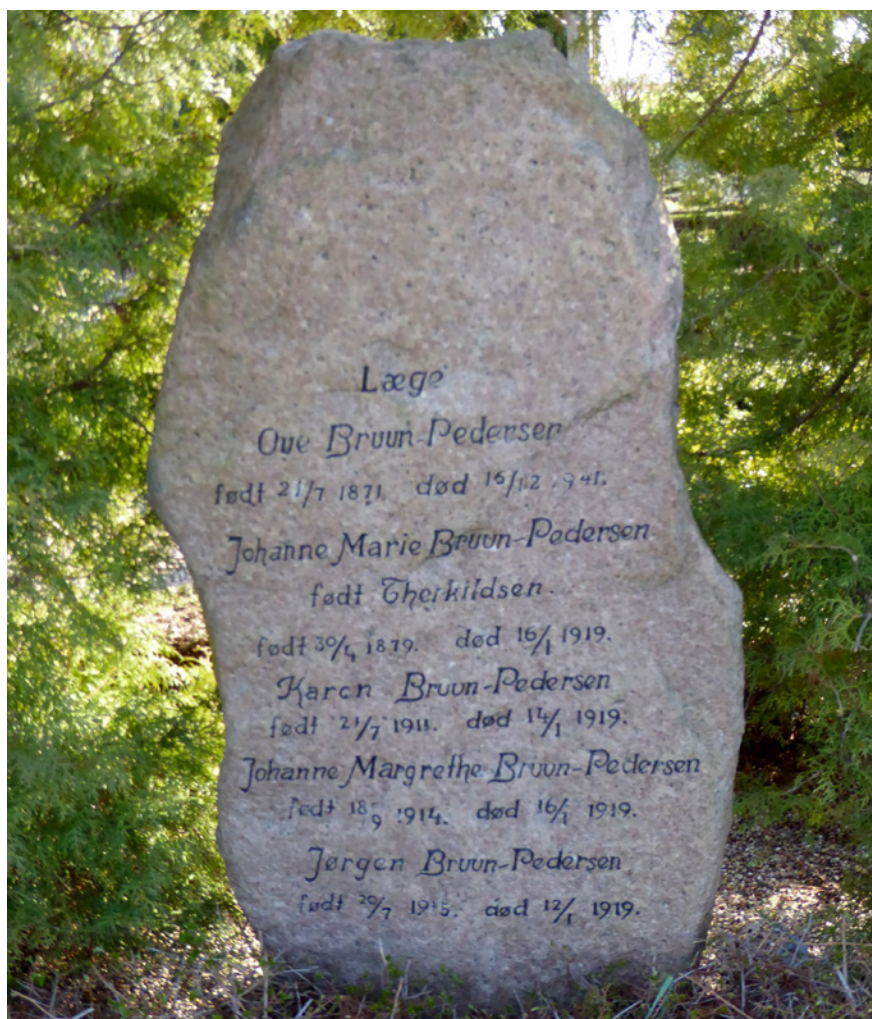 Læge
Ove Bruun-Pedersen
født 21/7 1871. død 16/12 1941.
Johanne Marie Bruun-Pedersen
født Therkildsen.
født 30/4 1879. død 16/1 1919.
Karen Bruun-Pedersen
født 21/7 1911. død 14/1 1919.
Johanne Margrethe Bruun-Pedersen
født 18/9 1914. død 16/1 1919.
Jørgen Bruun-Pedersen
født 20/7 1915. død 12/1 1919.